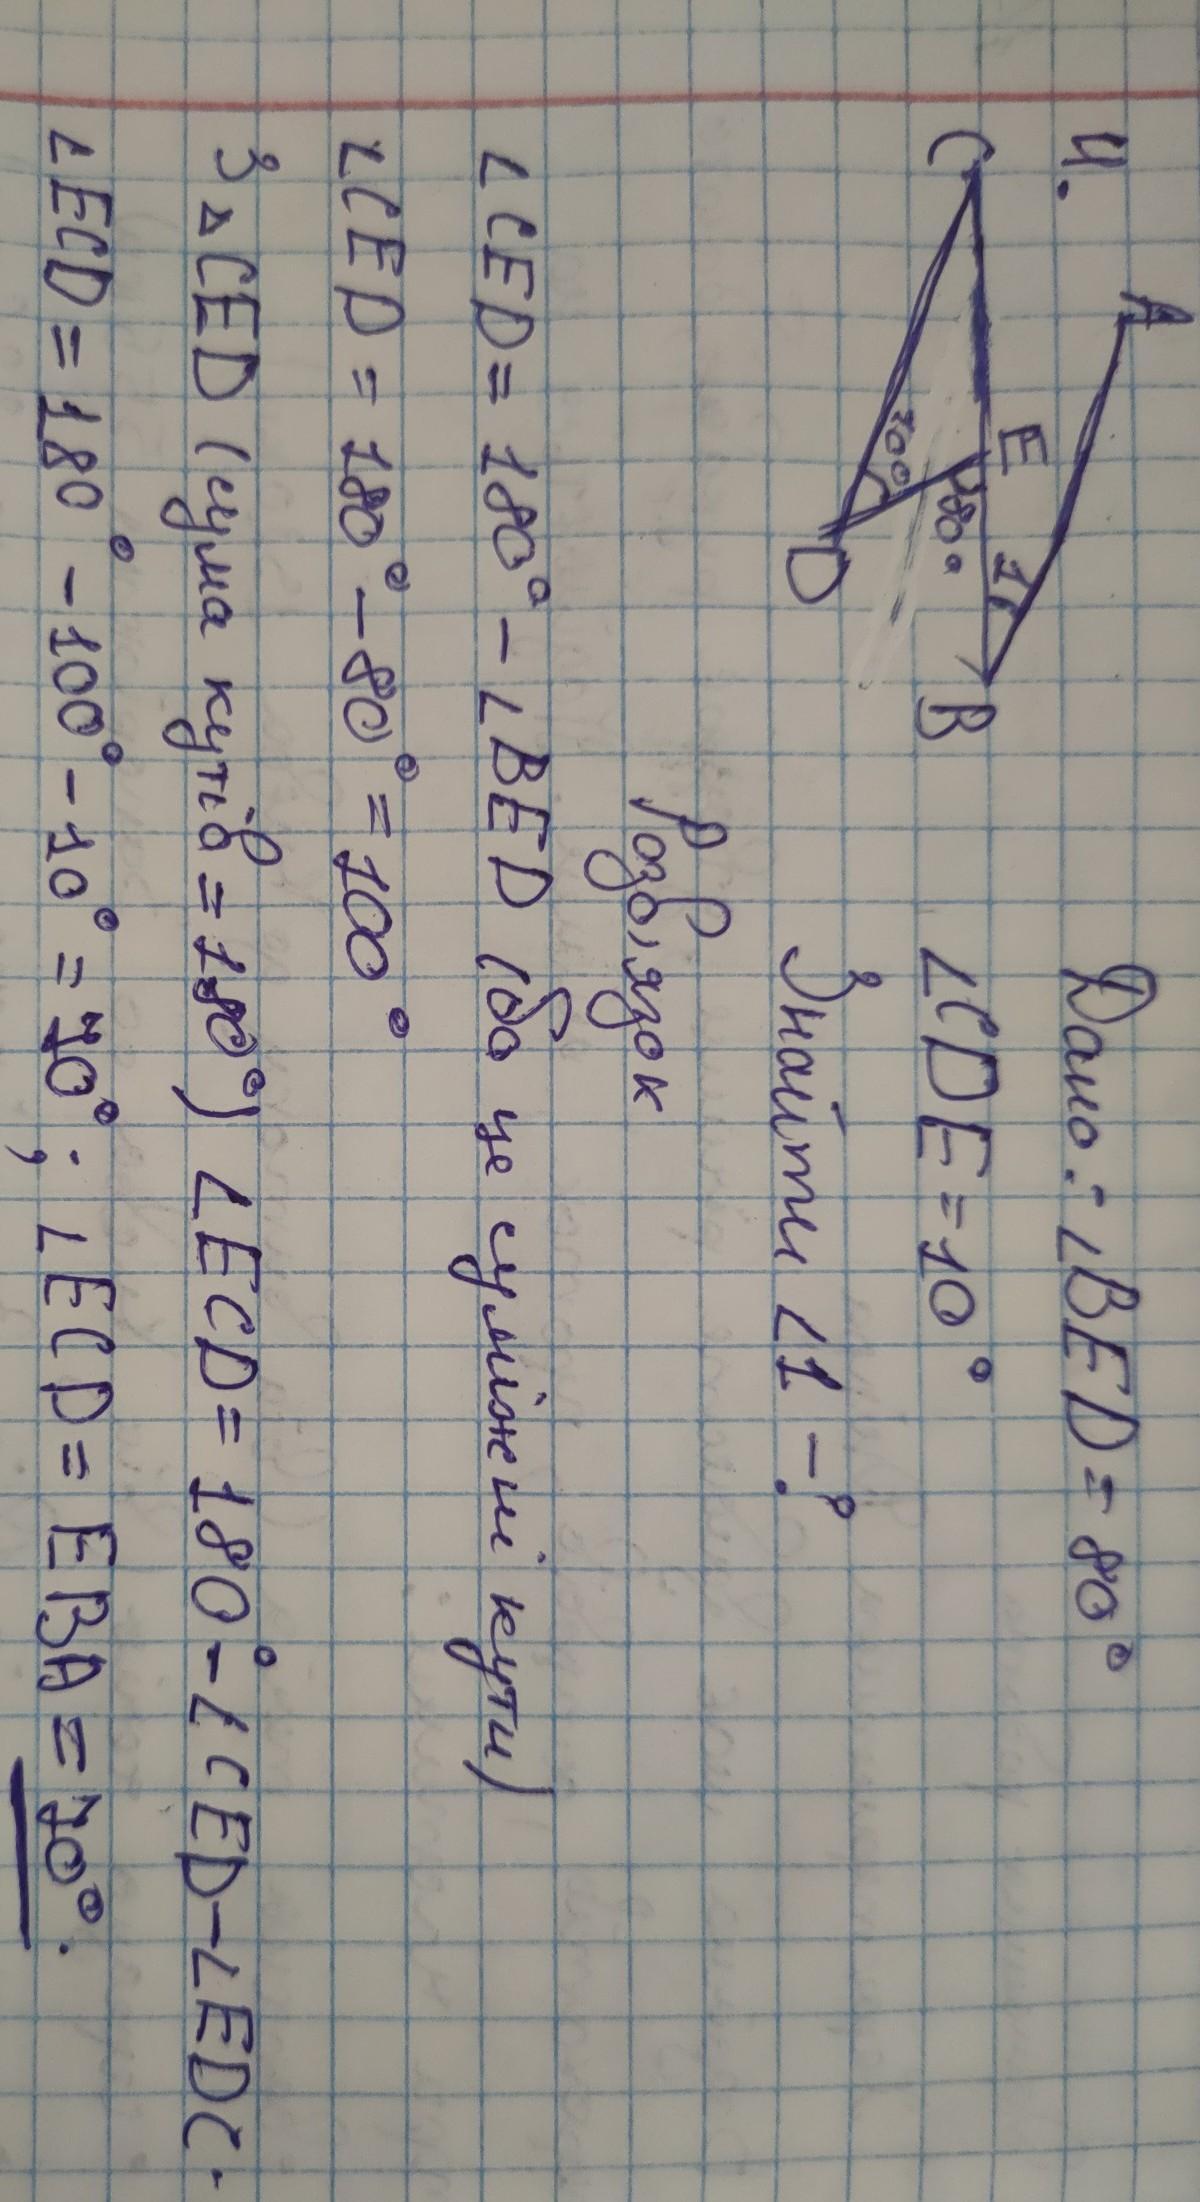 4.
A
C
E
B
D
1
80°
10°
Дано: ∠BED = 80°
∠CDE = 10°
Знайти ∠1 - ?
Розв'язок
∠CED = 180° - ∠BED (бо це суміжні кути)
∠CED = 180° - 80° = 100°
З △CED (сума кутів = 180°) ∠ECD = 180° - ∠CED - ∠EDC.
∠ECD = 180° - 100° - 10° = 70°; ∠ECD = EBA = 70°.